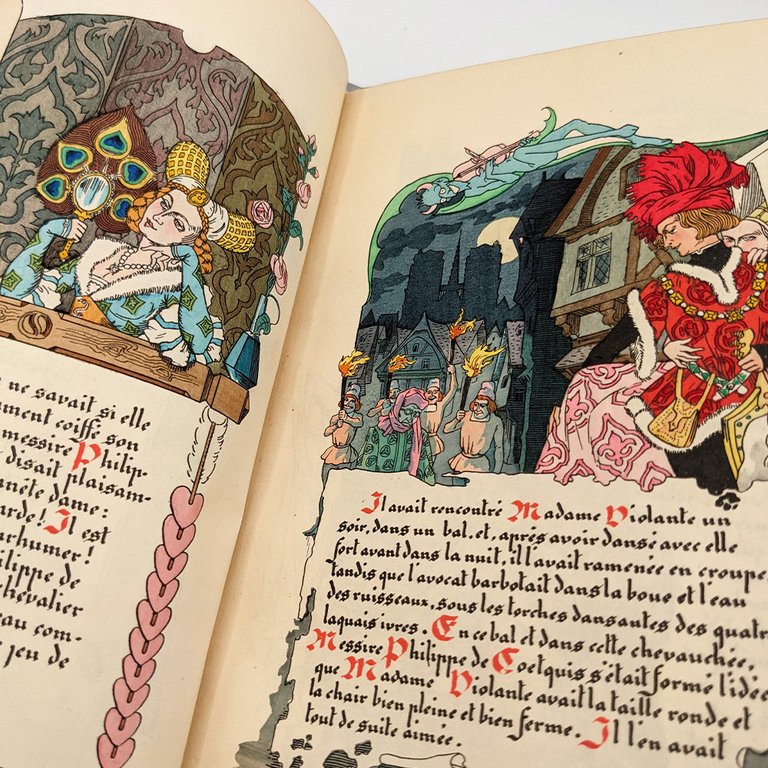 ne savait si elle
ment coiffé, son
messire Philip-
disait plaisam-
nête dame:
arde! Il est
arhumer!
ilippe de
chevalier
eau com-
jeu de
Il avait rencontré Madame Violante un
soir, dans un bal, et, après avoir dansé avec elle
fort avant dans la nuit, il l'avait ramenée en croupe,
tandis que l'avocat barbotait dans la boue et l'eau
des ruisseaux, sous les torches dansantes des quatr
laquais ivres. En ce bal et dans cette chevauchée,
Messire Philippe de Coetquis s'était formé l'idée
que Madame Violante avait la taille ronde et
la chair bien pleine et bien ferme. Il l'en avait
tout de suite aimée.